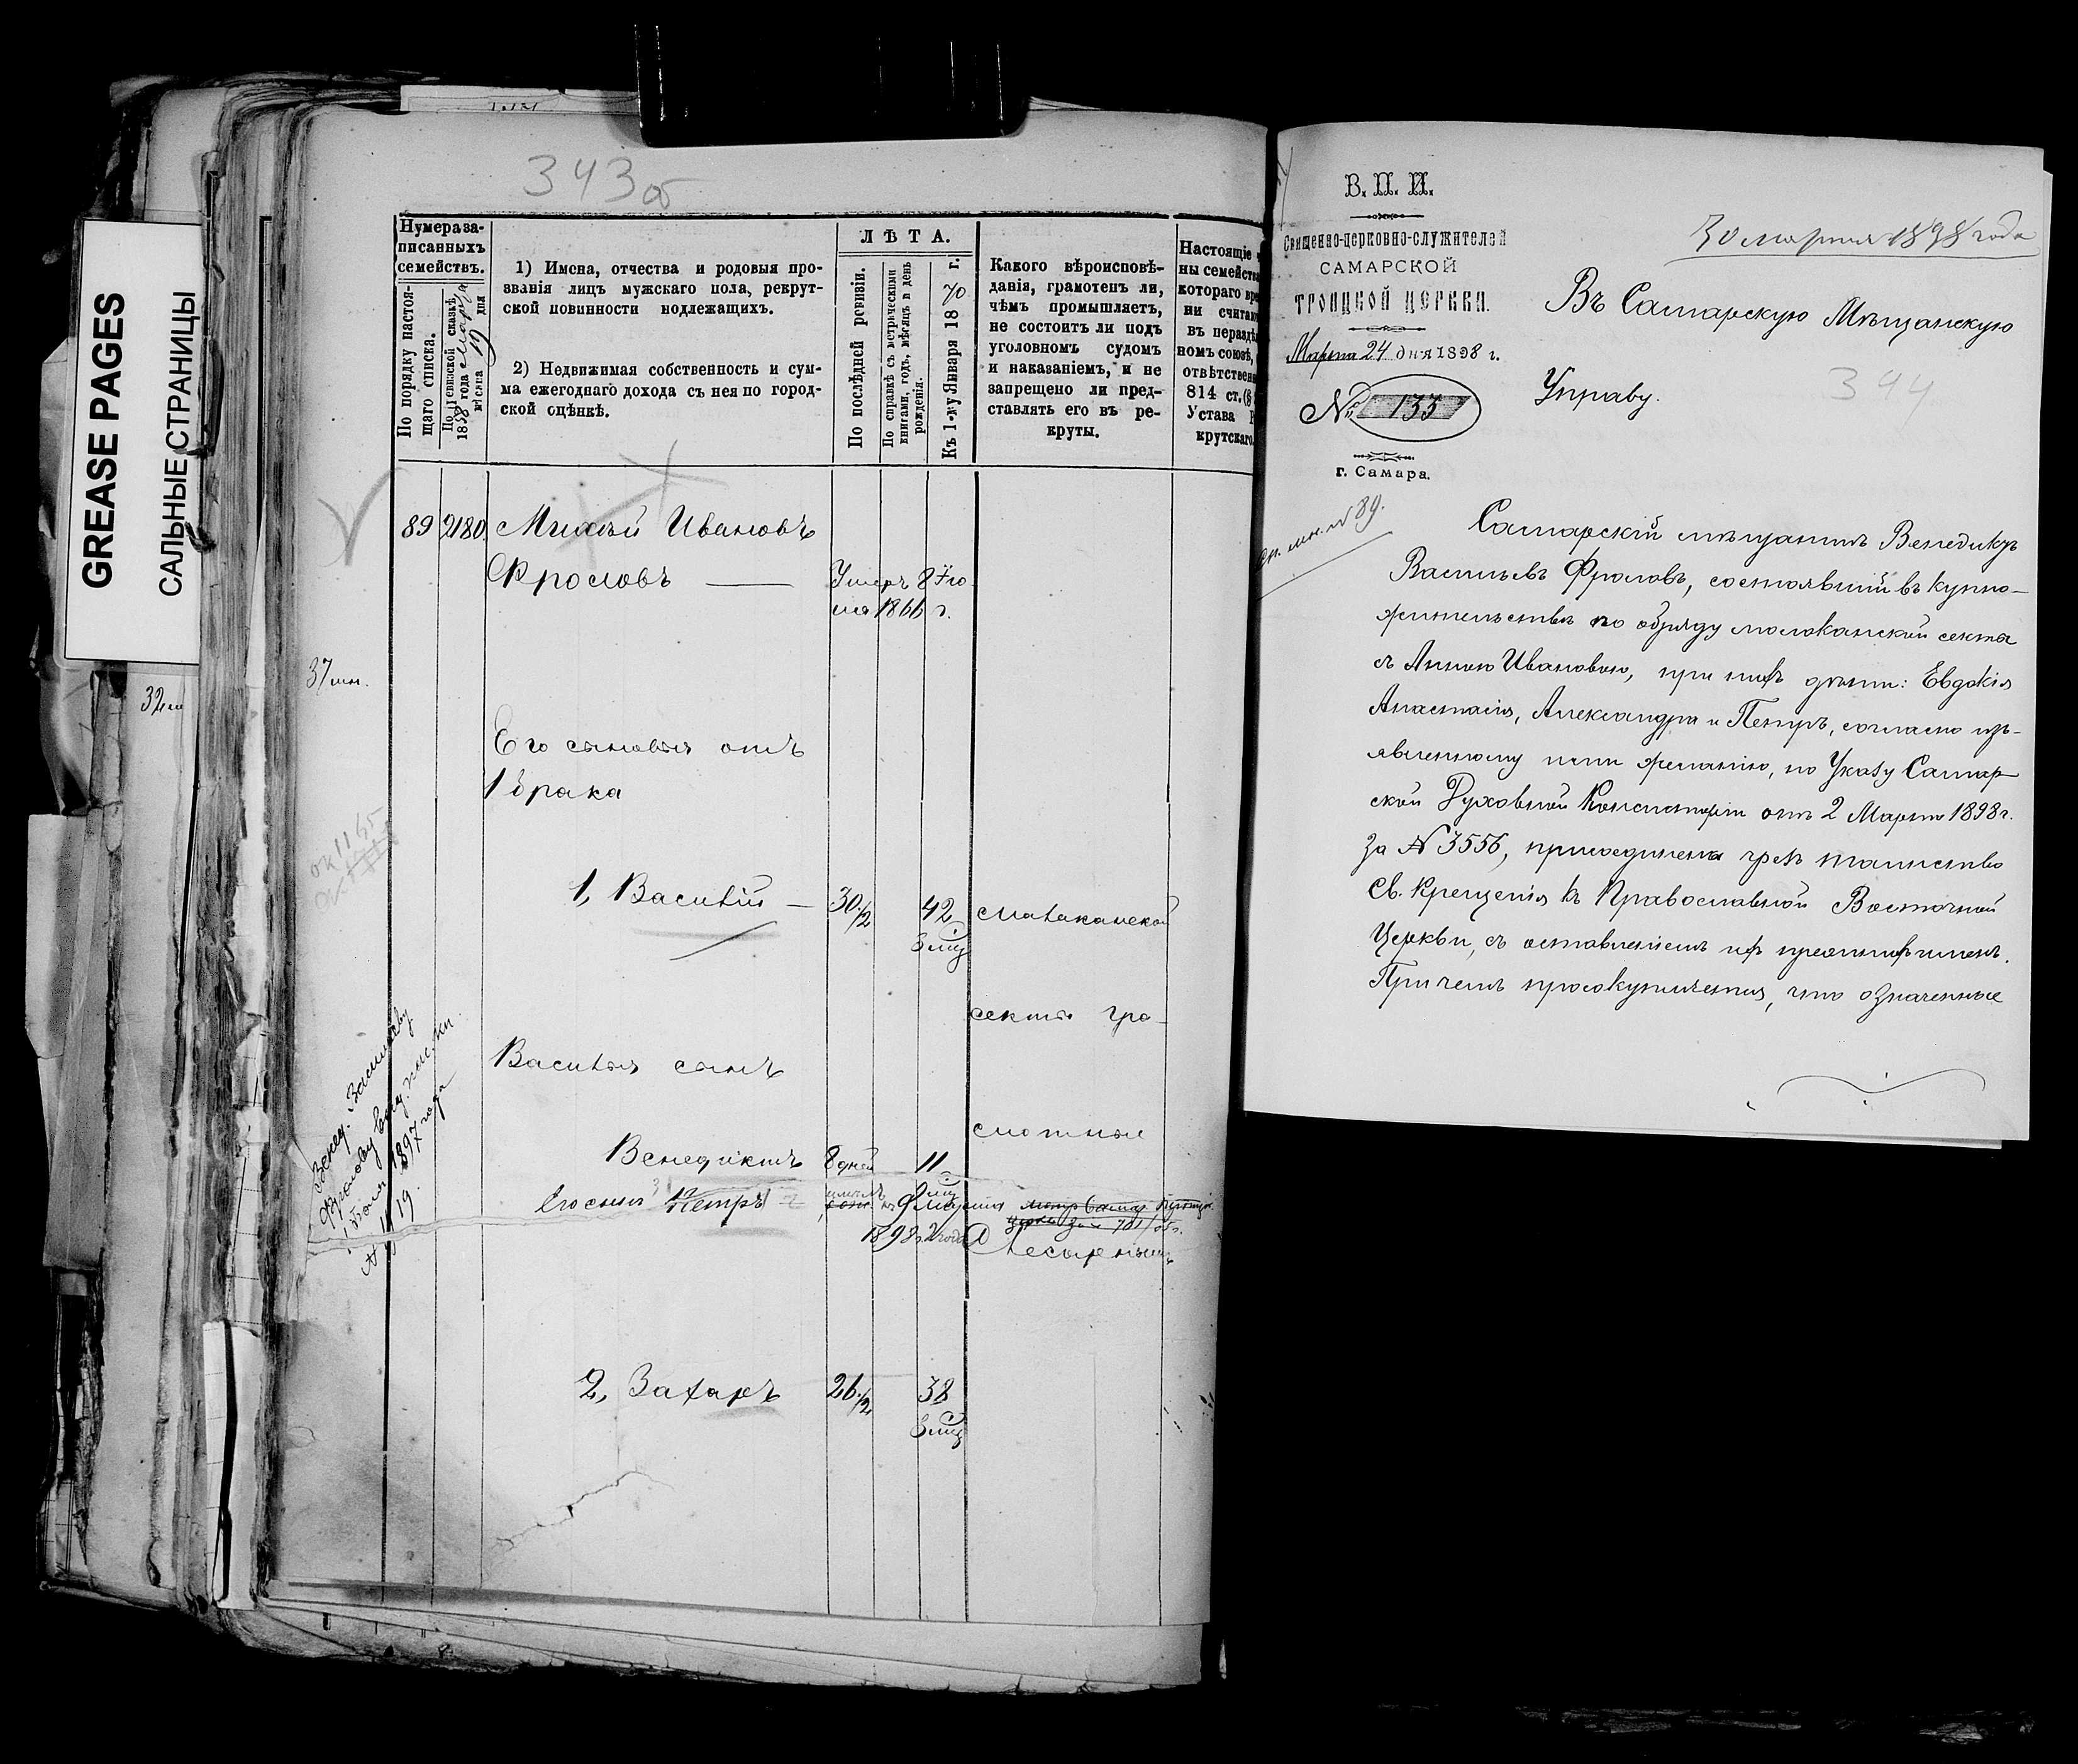 GREASE PAGES
САЛЬНЫЕ СТРАНИЦЫ
32
343об
Нумера за-
писанныхъ
семействъ.
По порядку настоя-
щаго списка.
По ревизской сказкѣ
1858 года Марта
мѣсяца 19 дня
1) Имена, отчества и родовыя про-
званія лицъ мужскаго пола, рекрут-
ской повинности подлежащихъ.
2) Недвижимая собственность и сум-
ма ежегоднаго дохода съ нея по город-
ской оцѣнкѣ.
ЛѢТА.
По послѣдней ревизіи.
По справкѣ съ метрическими
книгами, годъ, мѣсяцъ и день
рожденія.
Къ 1-му Января 1870 г.
Какого вѣроисповѣ-
данія, грамотенъ ли,
чѣмъ промышляетъ,
не состоитъ ли подъ
уголовномъ судомъ
и наказаніемъ, и не
запрещено ли пред-
ставлять его въ ре-
круты.
Настоящіе
ны семейства
котораго вре
ни считаю
въ нераздѣ
номъ союзѣ,
отвѣтствен
814 ст. (§
Устава Р
крутскаго.
89 2180 Михѣй Ивановъ
Фроловъ — Умеръ 8 Iю
ля 1866 г.
37 мн.
Его сыновья отъ
1 брака
1, Василій — 30 1/2 42 малаканской
6 мц
секты гра-
Василья сынъ
мотные
Венедиктъ 8 дней 11
Его сынъ Петръ
1898 г.
Венед. Васильеву
Фролову
1897 года
№ 1119.
2, Захаръ 26 1/2 38
6 мц
В. П. И.
Священно-церковно-служителей
САМАРСКОЙ
ТРОИЦКОЙ ЦЕРКВИ.
Марта 24 дня 1898 г.
№ 133
г. Самара.
30 марта 1898 года
Въ Самарскую Мѣщанскую
Управу.
344
№ 89.
Самарскій мѣщанинъ Венедиктъ
Васильевъ Фроловъ, состоявшій въ купно-
жительствѣ по обряду молоканской секты
съ Анною Ивановою, при нихъ дѣти: Евдокія
Анастасія, Александра и Петръ, согласно изъ-
явленному ими желанію, по Указу Самар-
ской Духовной Консисторіи отъ 2 Марта 1898 г.
за № 3556, присоединены чрезъ таинство
Св. Крещенія къ Православной Восточной
Церкви, съ оставленіемъ ихъ прежнихъ именъ.
При чемъ присокупляется, что означенные